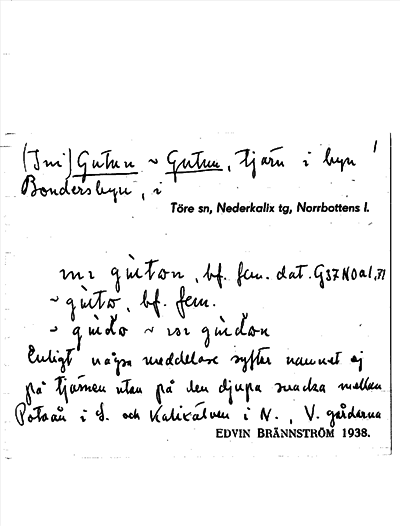 (Ini) Gutun ~ Gutun, tjärn i byn 1
Bondersbyn, i
Töre sn, Nederkalix tg, Norrbottens l.
bf. fem. dat.
~ gùto, bf. fem.
Enligt några meddelare syftar namnet ej
på tjärnen utan på den djupa svacka mellan
i S. och Kalixälven i N., V. gårdarna
EDVIN BRÄNNSTRÖM 1938.